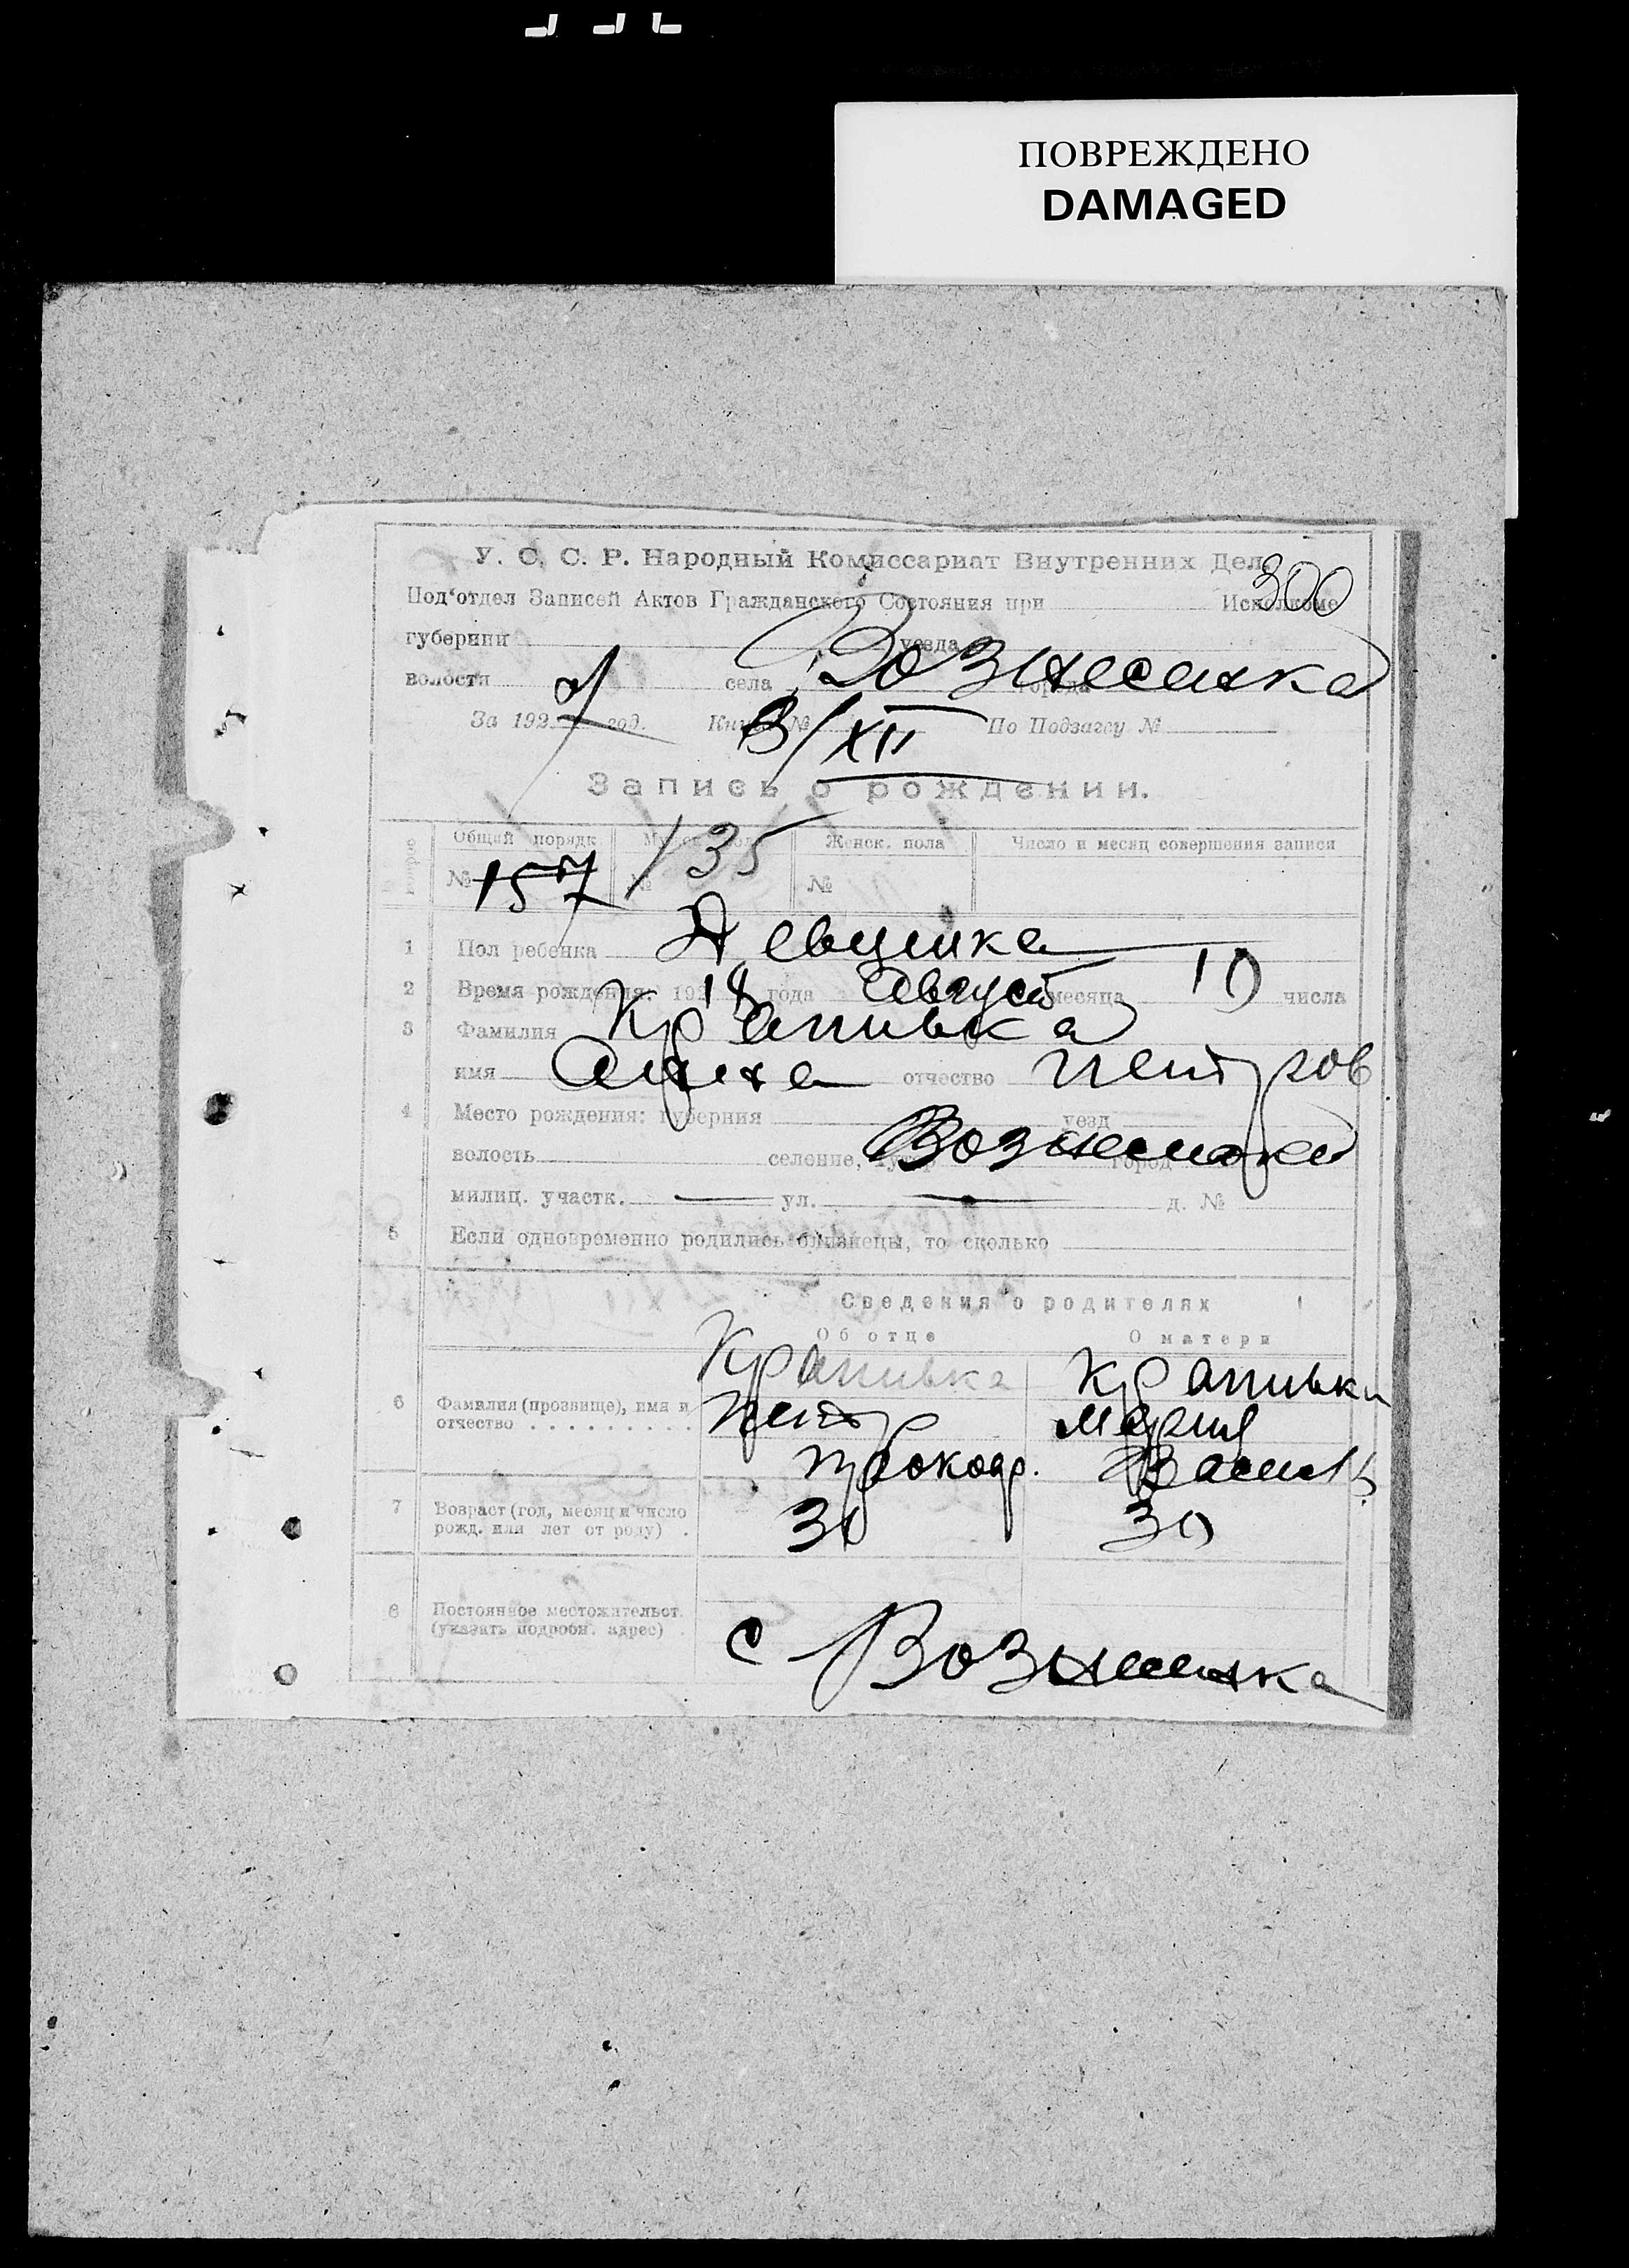 ПОВРЕЖДЕНО
DAMAGED
У. С. С. Р. Народный Комиссариат Внутренних Дел.
300
Под'отдел Записей Актов Гражданского Состояния при Исполкоме
губернии уезда
волости села Вознесенка города
За 192 год. Книга № По Подзагсу №
3/XII
Запись о рождении.
Общий порядк. Мужск. пола Женск. пола Число и месяц совершения записи
№ 157 № 135 №
1 Пол ребенка Девушка
2 Время рождения: 192 18 года Август месяца 10 числа
3 Фамилия Крапивка
имя Анна отчество Петров
4 Место рождения: губерния уезд
волость селение, хутор Вознесенка город
милиц. участк. — ул. — д. №
5 Если одновременно родились близнецы, то сколько
Сведения о родителях
Об отце О матери
Крапивка Крапивка
6 Фамилия (прозвище), имя и отчество Петр Мария
Прокоф. Васил
7 Возраст (год, месяц и число рожд. или лет от роду) 30 30
8 Постоянное местожительст. (указать подробн. адрес)
с Вознесенка